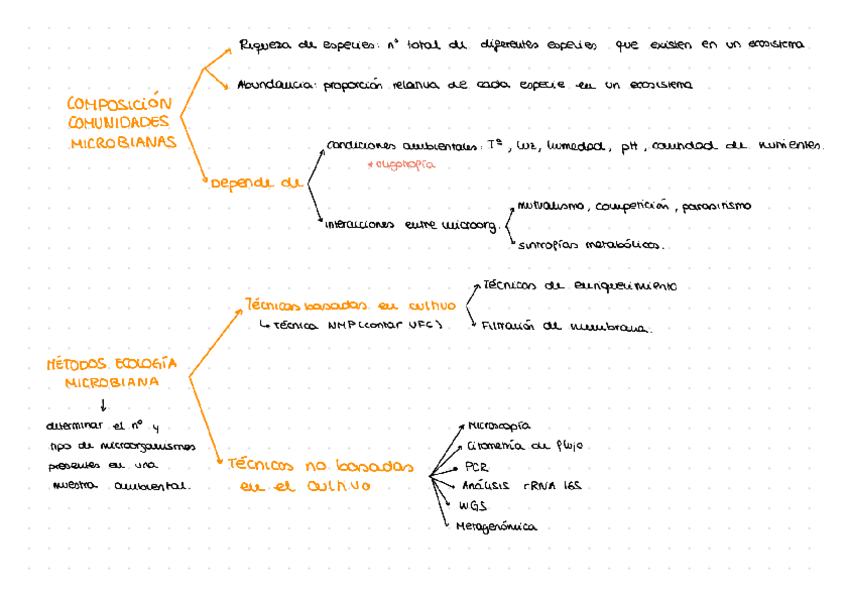 Riqueza de especies: nº total de diferentes especies que existen en un ecosistema
Abundancia: proporción relativa de cada especie en un ecosistema
COMPOSICIÓN
COMUNIDADES
MICROBIANAS
Depende de
condiciones ambientales: Tª, luz, humedad, pH, cantidad de nutrientes.
* oligotrofía
interacciones entre microorg.
mutualismo, competición, parasitismo
sintropías metabólicas.
Técnicas basadas en cultivo
↳ Técnica NMP (contar UFC)
Técnicas de enriquecimiento
Filtración de membrana.
MÉTODOS ECOLOGÍA
MICROBIANA
determinar el nº y
tipo de microorganismos
presentes en una
muestra ambiental.
Técnicas no basadas
en el cultivo
Microscopía
Citometría de flujo
PCR
Análisis rRNA 16S
WGS
Metagenómica